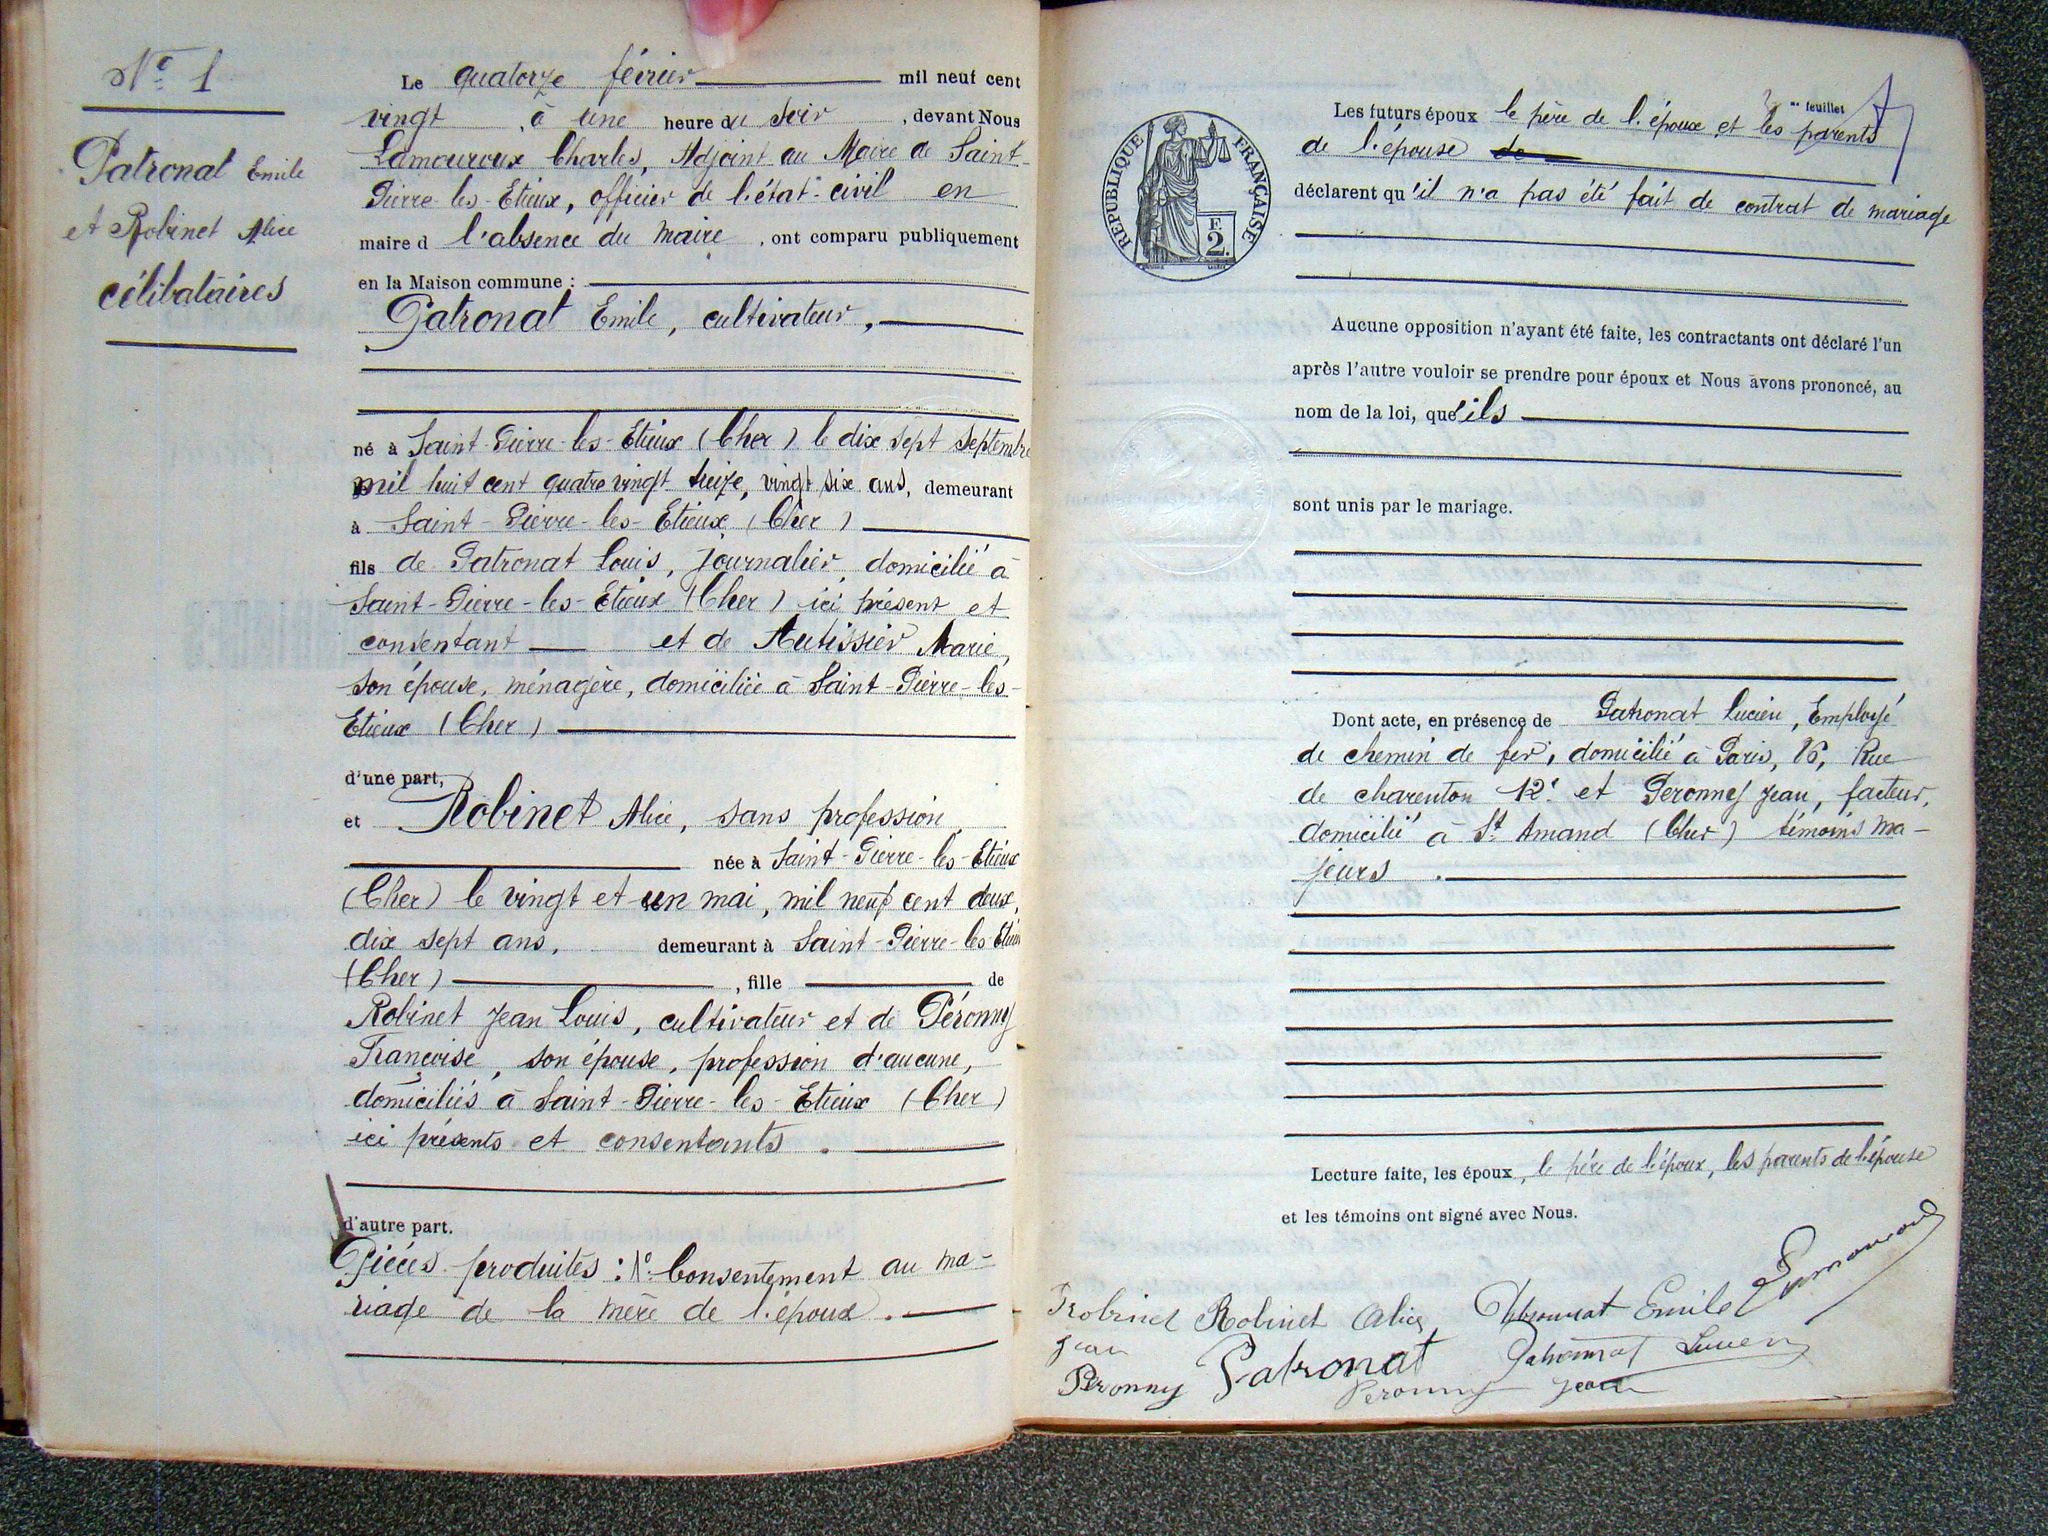 N° 1
Patronat Emile
et Robinet Alice
célibataires
Le quatorze février mil neuf cent
vingt, à une heure du soir, devant Nous
Lamouroux Charles, Adjoint au Maire de Saint-
Pierre-les-Etieux, officier de l'état-civil en
maire d l'absence du maire, ont comparu publiquement
en la Maison commune :
Patronat Emile, cultivateur,
né à Saint-Pierre-les-Etieux (Cher) le dix sept septembre
mil huit cent quatre vingt treize, vingt six ans, demeurant
à Saint-Pierre-les-Etieux (Cher)
fils de Patronat Louis, journalier, domicilié à
Saint-Pierre-les-Etieux (Cher) ici présent et
consentant et de Autissier Marie,
son épouse, ménagère, domiciliée à Saint-Pierre-les-
Etieux (Cher)
d'une part,
et Robinet Alice, sans profession,
née à Saint-Pierre-les-Etieux
(Cher) le vingt et un mai, mil neuf cent deux,
dix sept ans, demeurant à Saint-Pierre-les-Etieux
(Cher), fille de
Robinet Jean Louis, cultivateur et de Péronny
Françoise, son épouse, profession d'aucune,
domiciliés à Saint-Pierre-les-Etieux (Cher)
ici présents et consentants.
d'autre part.
Pièces produites : 1° Consentement au ma-
riage de la mère de l'époux.
REPUBLIQUE FRANÇAISE
F.
2.
feuillet
Les futurs époux le père de l'époux et les parents
de l'épouse de
déclarent qu'il n'a pas été fait de contrat de mariage
Aucune opposition n'ayant été faite, les contractants ont déclaré l'un
après l'autre vouloir se prendre pour époux et Nous avons prononcé, au
nom de la loi, qu'ils
sont unis par le mariage.
Dont acte, en présence de Patronat Lucien, Employé
de chemin de fer, domicilié à Paris, Rue
de charenton 12e et Peronny Jean, facteur,
domicilié à St Amand (Cher) témoins ma-
jeurs.
Lecture faite, les époux, le père de l'époux, les parents de l'épouse
et les témoins ont signé avec Nous.
Robinet Robinet Alice Patronat Emile
Jean Patronat Lucien
Peronny Patronat Peronny Jean